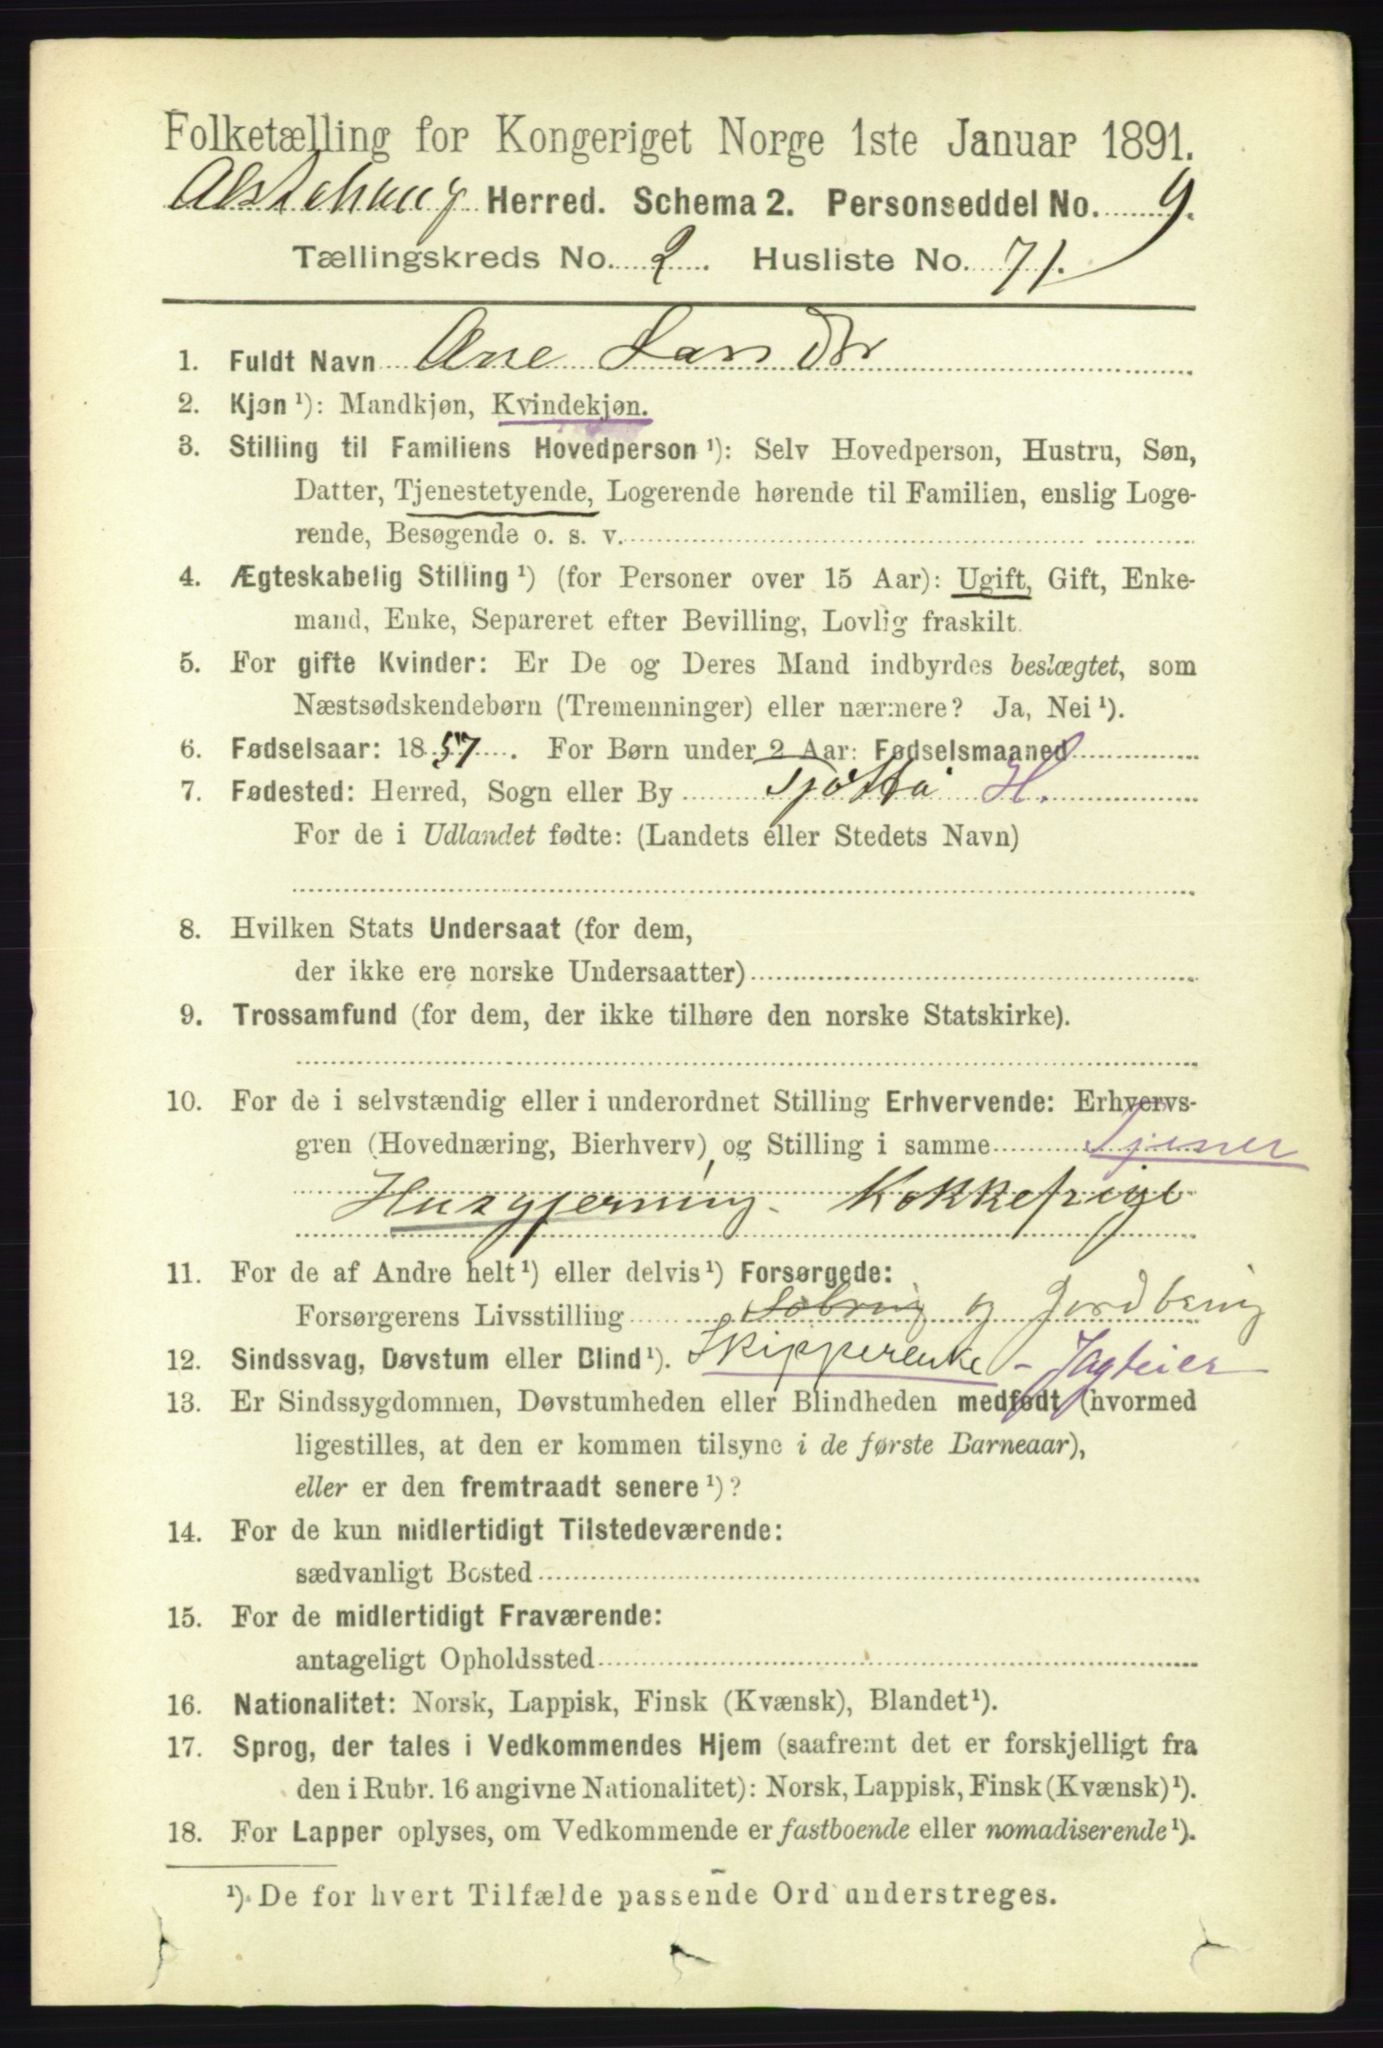 Folketælling for Kongeriget Norge 1ste Januar 1891.
Alstahaug Herred. Schema 2. Personseddel No. 9.
Tællingskreds No. 2. Husliste No. 71.
1. Fuldt Navn Ane Lars Dtr
2. Kjøn ¹): Mandkjøn, Kvindekjøn.
3. Stilling til Familiens Hovedperson ¹): Selv Hovedperson, Hustru, Søn,
Datter, Tjenestetyende, Logerende hørende til Familien, enslig Loge-
rende, Besøgende o. s. v.
4. Ægteskabelig Stilling ¹) (for Personer over 15 Aar): Ugift, Gift, Enke-
mand, Enke, Separeret efter Bevilling, Lovlig fraskilt.
5. For gifte Kvinder: Er De og Deres Mand indbyrdes beslægtet, som
Næstsødskendebørn (Tremenninger) eller nærmere? Ja, Nei ¹).
6. Fødselsaar: 1857. For Børn under 2 Aar: Fødselsmaaned
7. Fødested: Herred, Sogn eller By Tjøtta H.
For de i Udlandet fødte: (Landets eller Stedets Navn)
8. Hvilken Stats Undersaat (for dem,
der ikke ere norske Undersaatter)
9. Trossamfund (for dem, der ikke tilhøre den norske Statskirke).
10. For de i selvstændig eller i underordnet Stilling Erhvervende: Erhvervs-
gren (Hovednæring, Bierhverv) og Stilling i samme Tjener
Husgjerning. Kokkepige
11. For de af Andre helt ¹) eller delvis ¹) Forsørgede:
Forsørgerens Livsstilling og Jordbrug
12. Sindssvag, Døvstum eller Blind ¹). Skipperenke - Jagteier
13. Er Sindssygdommen, Døvstumheden eller Blindheden medfødt (hvormed
ligestilles, at den er kommen tilsyne i de første Barneaar),
eller er den fremtraadt senere ¹)?
14. For de kun midlertidigt Tilstedeværende:
sædvanligt Bosted
15. For de midlertidigt Fraværende:
antageligt Opholdssted
16. Nationalitet: Norsk, Lappisk, Finsk (Kvænsk), Blandet ¹).
17. Sprog, der tales i Vedkommendes Hjem (saafremt det er forskjelligt fra
den i Rubr. 16 angivne Nationalitet): Norsk, Lappisk, Finsk (Kvænsk) ¹).
18. For Lapper oplyses, om Vedkommende er fastboende eller nomadiserende ¹).
¹). De for hvert Tilfælde passende Ord understreges.